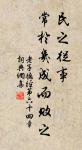 民之從事
常於幾成而敗之
老子德經第六十四章
詞典網集